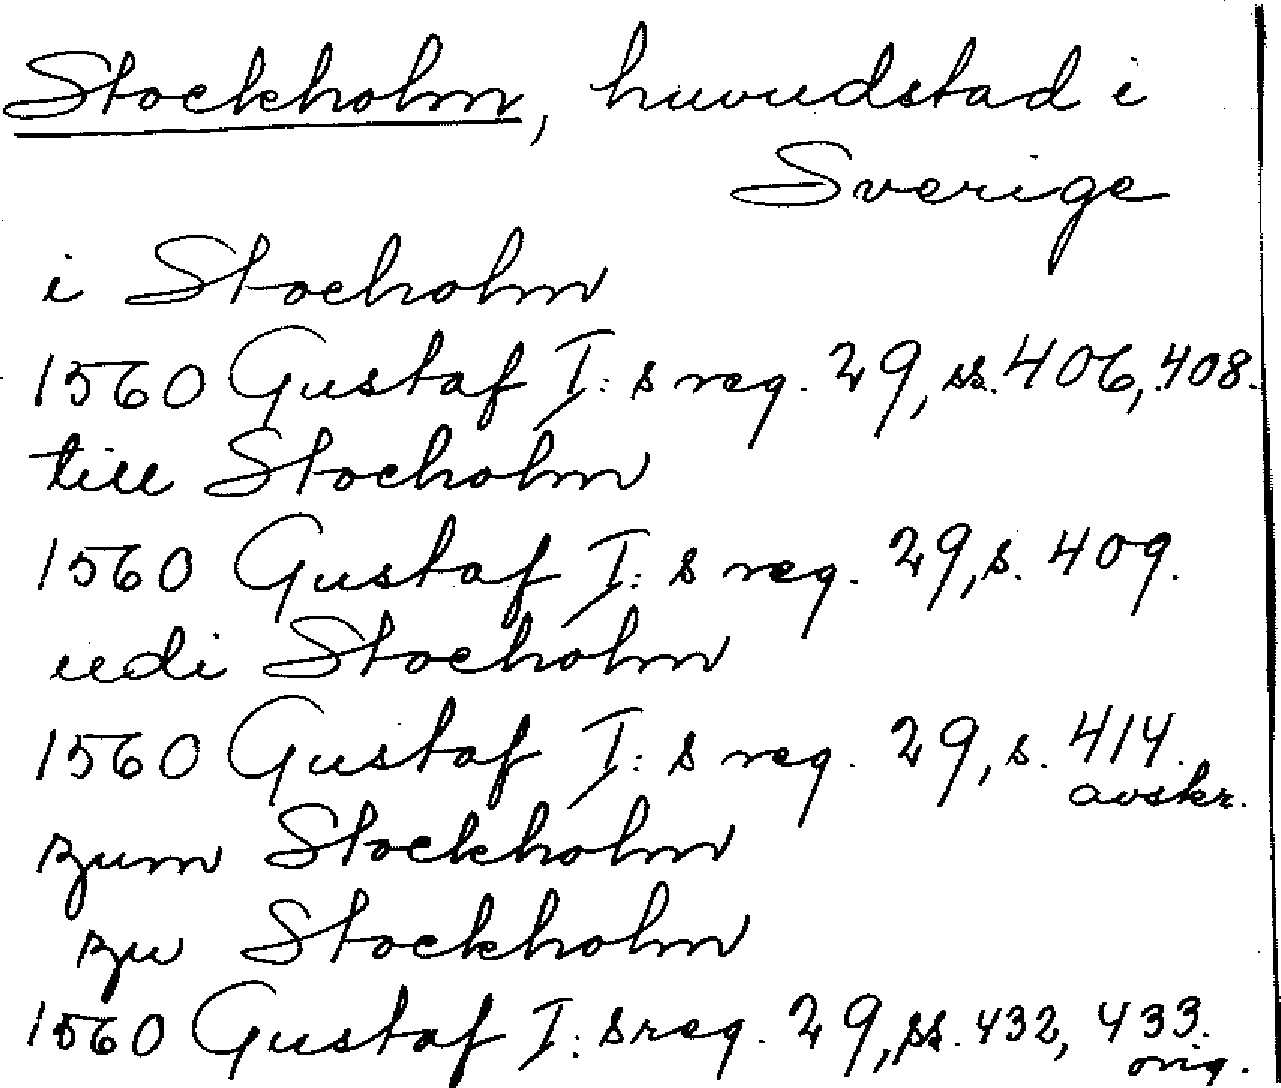 Stockholm, huvudstad i
Sverige
i Stocholm
1560 Gustaf I:s reg. 29, ss. 406, 408.
till Stocholm
1560 Gustaf I:s reg. 29, s. 409.
udi Stocholm
1560 Gustaf I:s reg. 29, s. 414.
avskr.
zum Stockholm
zu Stockholm
1560 Gustaf I:s reg. 29, ss. 432, 433.
orig.